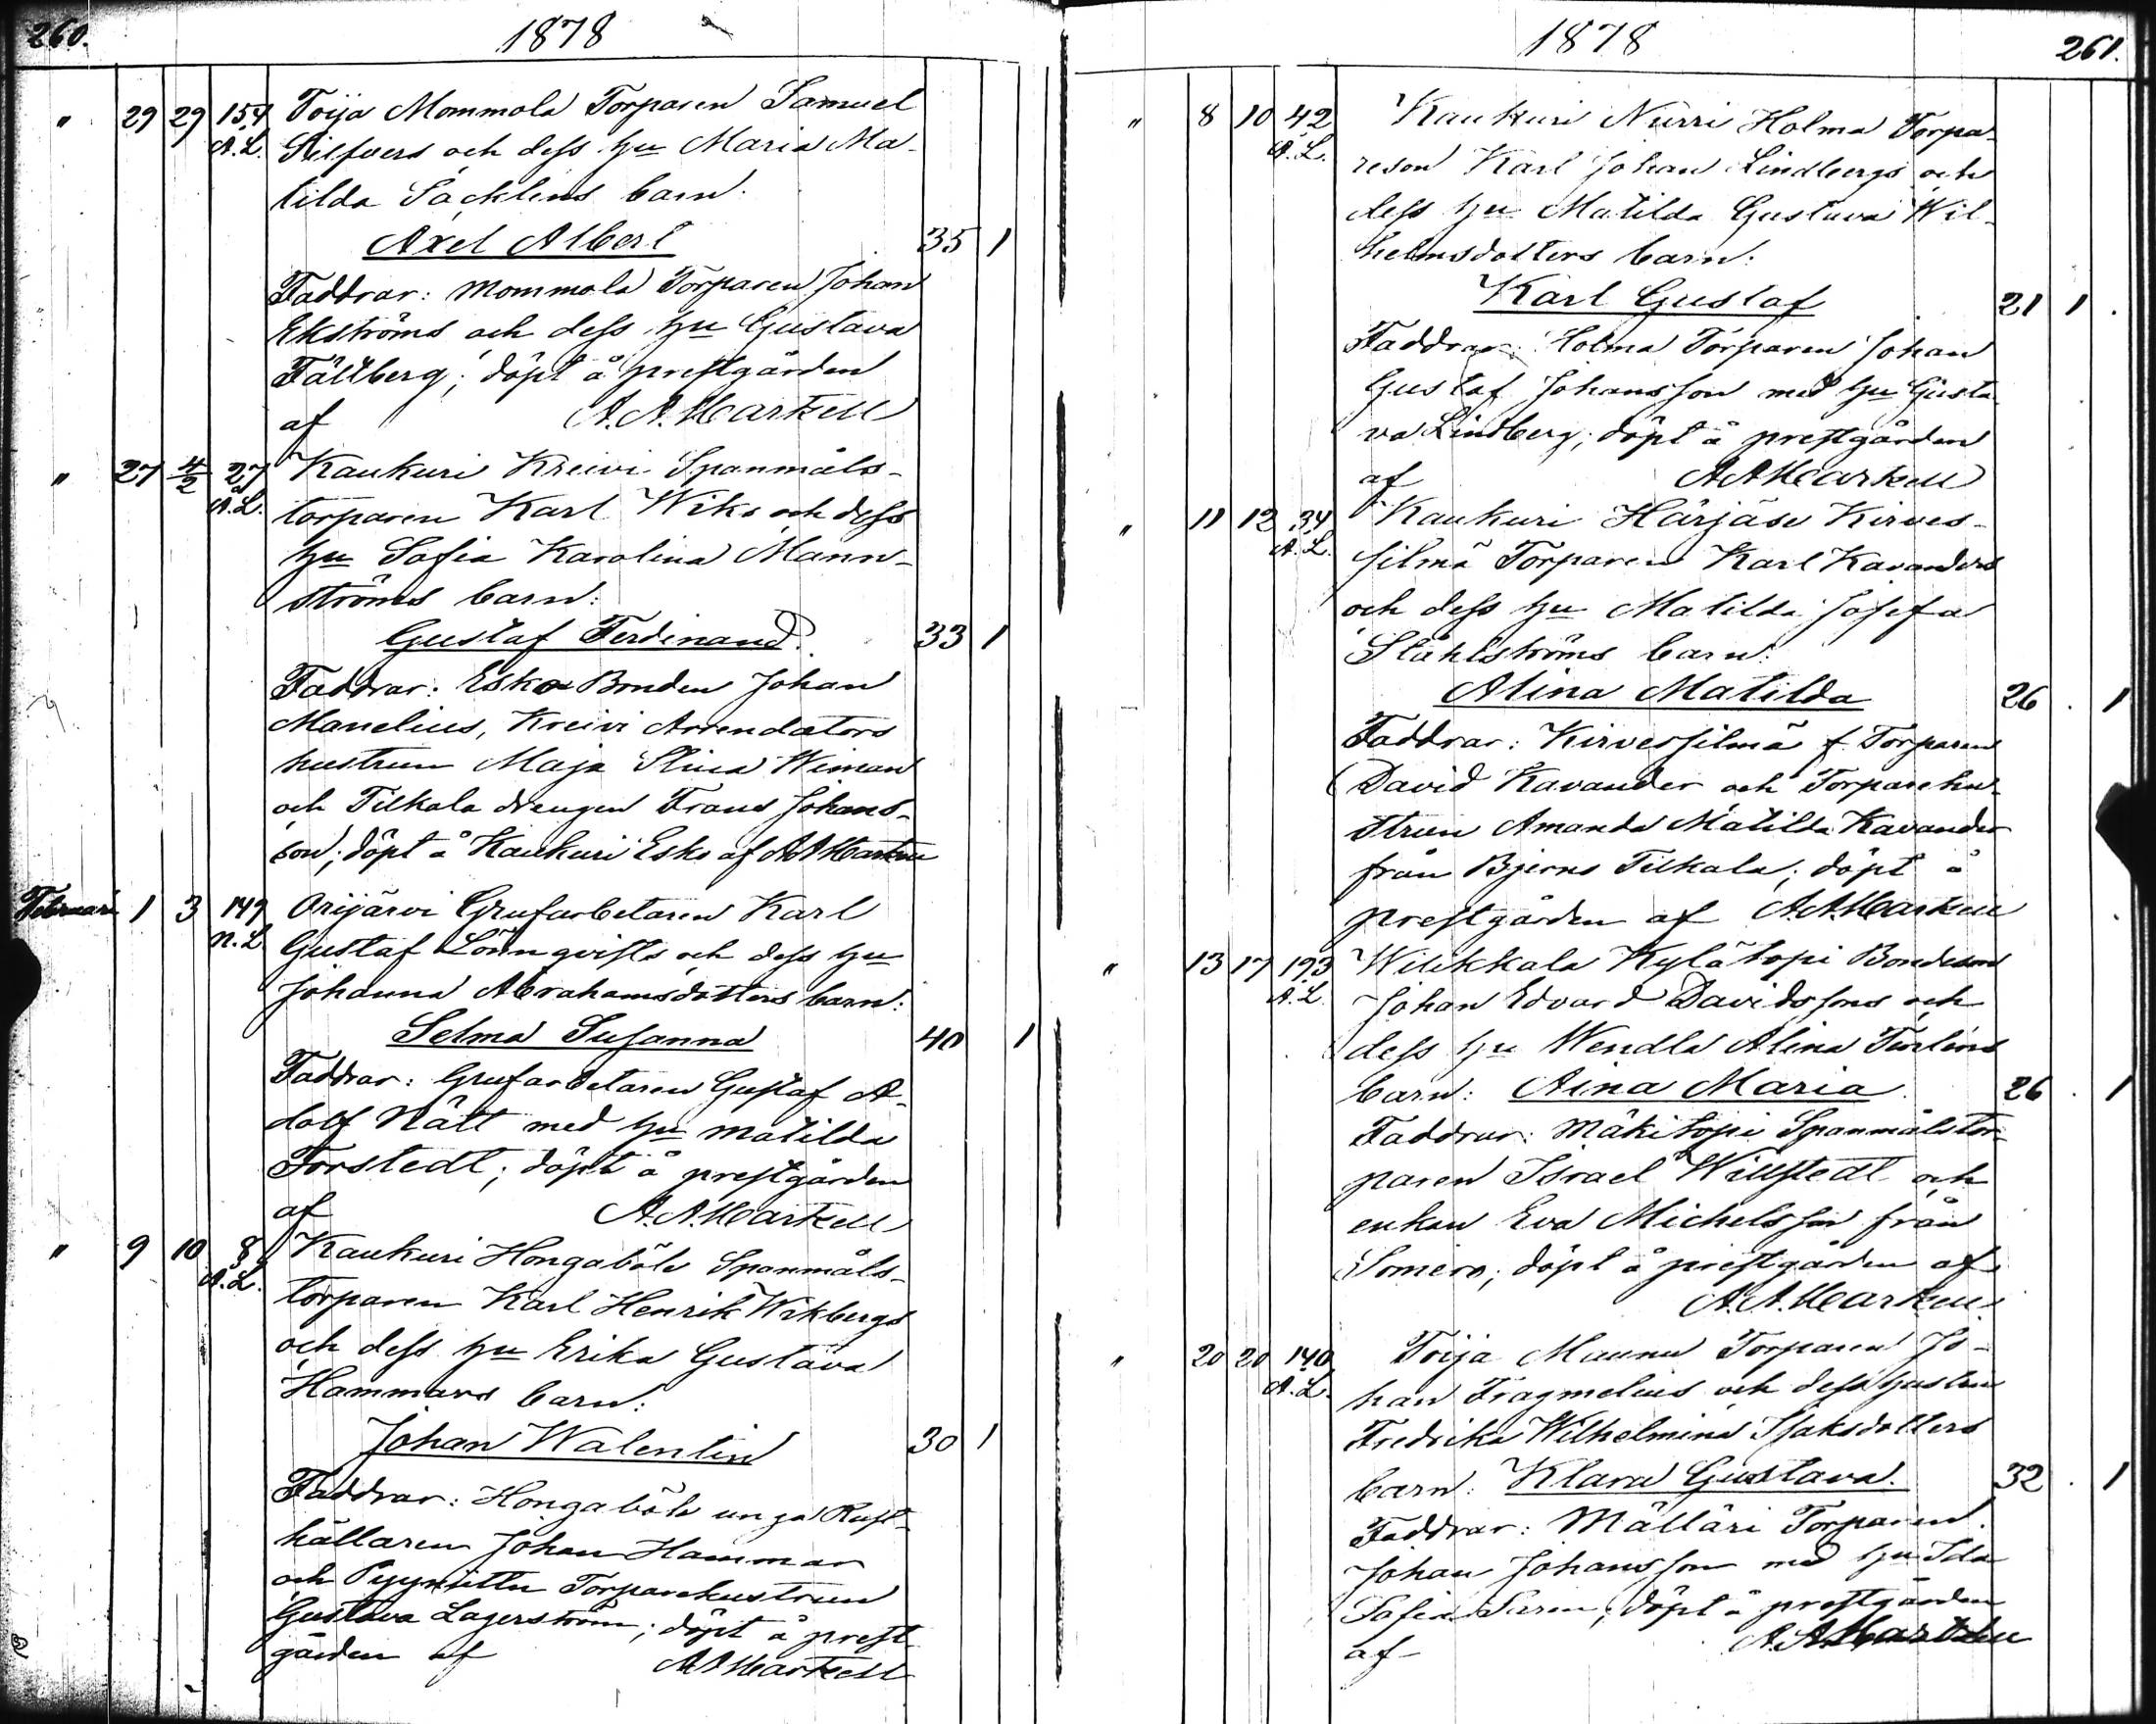 260. 1878
" 29 29 154 Toija Mommola Torparen Samuel
A.L. Silfvers och dess hu Maria Ma-
tilda Säcklins barn:
Axel Albert 35 1
Faddrar: Mommola Torparen Johan
Ekströms och dess hu Gustava
Fältberg; döpt å prestgården
af A.A. Markell
" 27 4/2 27 Kaukuri Kreivi Spanmåls-
A.L. torparen Karl Wiks och dess
hu Sofia Karolina Mann-
ströms barn:
Gustaf Ferdinand. 33 1
Faddrar: Esko Bonden Johan
Manelius, Kreivi Arrendators
hustrun Maja Stina Wiman
och Tilkala drengen Frans Johans-
son; döpt å Kaukuri Esko af A A Markell
Februari 1 3 149 Orijärvi Grufarbetaren Karl
n.L Gustaf Lönnqvists och dess hu
Johanna Abrahamsdotters barn:
Selma Susanna 40 1
Faddrar: Grufarbetaren Gustaf A-
dolf Nätt med hu Matilda
Forstedt; döpt å prestgården
af A.A. Markell
" 9 10 8 Kaukuri Hongaböle Spanmåls-
A.L. torparen Karl Henrik Wikbergs
och dess hu Erika Gustava
Hammars barn:
Johan Walentin 30 1
Faddrar: Hongaböle unga Rust-
hållaren Johan Hammar
och Torparehustrun
Gustava Lagerström; döpt å prest-
gården af A A Markell
1878 261.
" 8 10 42 Kaukuri Nurri Holma Torpa-
A.L. reson Karl Johan Lindbergs och
dess hu Matilda Gustava Wil-
helmsdotters barn:
Karl Gustaf 21 1 .
Faddrar: Holma Torparen Johan
Gustaf Johansson med hu Gusta-
va Lindberg; döpt å prestgården
af A A Markell
" 11 12 34 Kaukuri Härjäse Kirves-
A.L. silmä Torparen Karl Kavanders
och dess hu Matilda Josefa
Ståhlströms barn:
Alina Matilda 26 . 1
Faddrar: Kirvessilmä f. Torparen
David Kavander och Torparehu-
strun Amanda Matilda Kavander
från Bjerno Tilkala; döpt å
prestgården af A.A. Markell
" 13 17 193 Wilikkala Kylätopi Bondeson
A.L. Johan Edvard Davidssons och
dess hu Wendla Alina
barn: Aina Maria. 26 . 1
Faddrar: Mäkitopi Spanmålstor-
paren Israel Willstedt och
enkan Eva Michelsson från
Somero; döpt å prestgården af
A.A. Markell
" 20 20 140 Toija Maunu Torparen Jo-
A.L. han Fragmelius och dess hustru
Fredrika Wilhelmina Isaksdotters
barn: Klara Gustava. 32 . 1
Faddrar: Mälläri Torparen
Johan Johansson med hu Ida
Sofia döpt å prestgården
af A.A. Markell